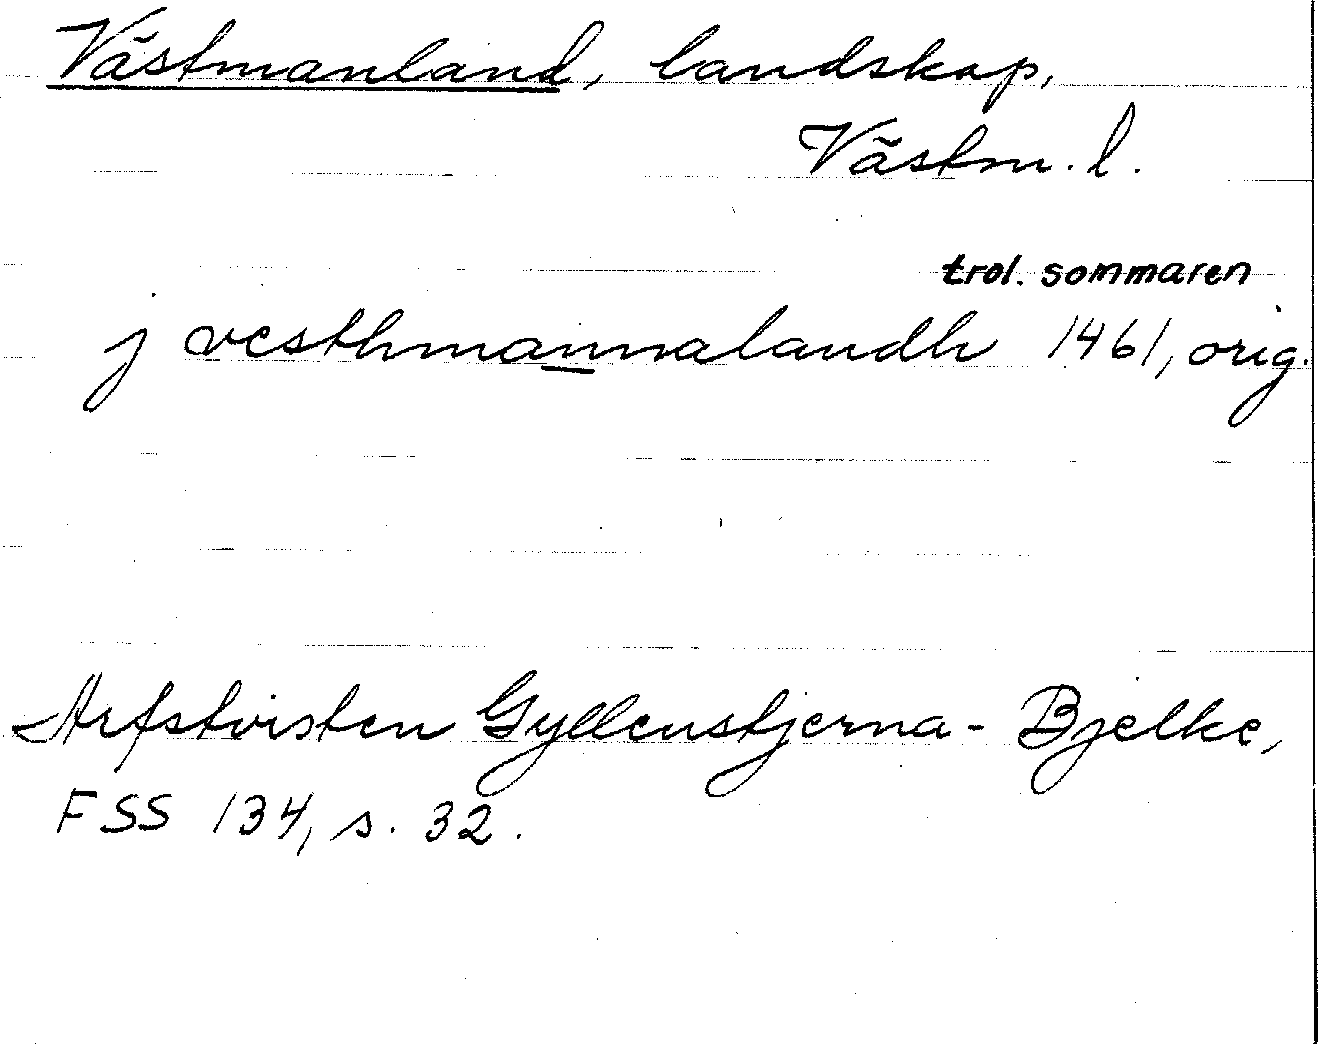 Västmanland, landskap,
Västm. l.
trol. sommaren
j vesthmannalandh 1461, orig.
Arfstvisten Gyllenstjerna - Bjelke,
FSS 134, s. 32.